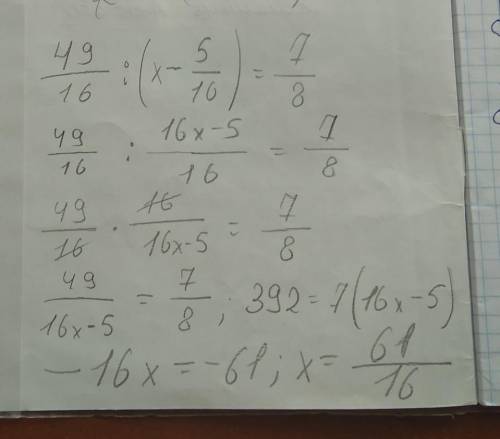 49/16 : (x - 5/16) = 7/8
49/16 : 16x-5/16 = 7/8
49/16 · 16/16x-5 = 7/8
49/16x-5 = 7/8 ; 392 = 7(16x-5)
-16x = -61 ; x = 61/16